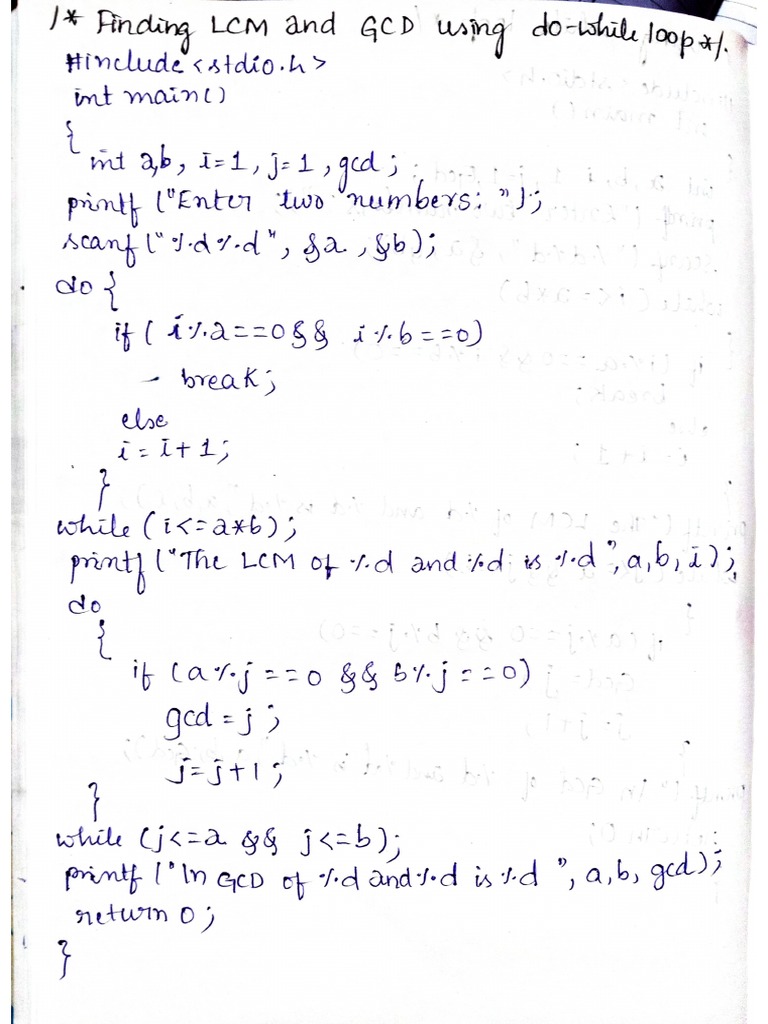 /* Finding LCM and GCD using do-while loop */.
#include <stdio.h>
int main()
{
int a,b, i=1, j=1, gcd;
printf ("Enter two numbers: ");
scanf ("%d%d", &a, &b);
do {
if ( i%a==0 && i%b==0)
- break;
else
i = i+1;
}
while (i<=a*b);
printf ("The LCM of %d and %d is %d", a, b, i);
do
{
if (a%j==0 && b%j==0)
gcd = j;
j=j+1;
}
while (j<=a && j<=b);
printf ("In GCD of %d and %d is %d ", a, b, gcd);
return 0;
}